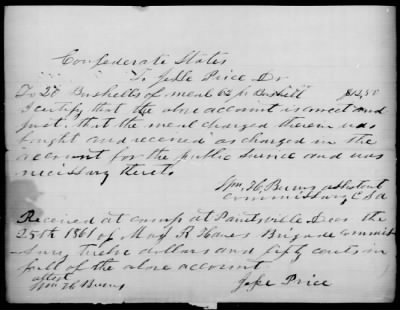 Confederate States
To Jesse Price Dr
To 20 Bushells of meal 62½ pr Bushell $12,50
I certify that the above account is correct and
just, that the meal charged therein was
bought and received as charged in the
account for the public service and was
necessary thereto
Wm. H. Burns assistant
Commissary C S A
Received at camp at Paintsville Dec the
25th 1861 of Maj R Hawes Brigade Commis-
sary twelve dollars and fifty cents in
full of the above account
attest
Wm H Burns Jesse Price